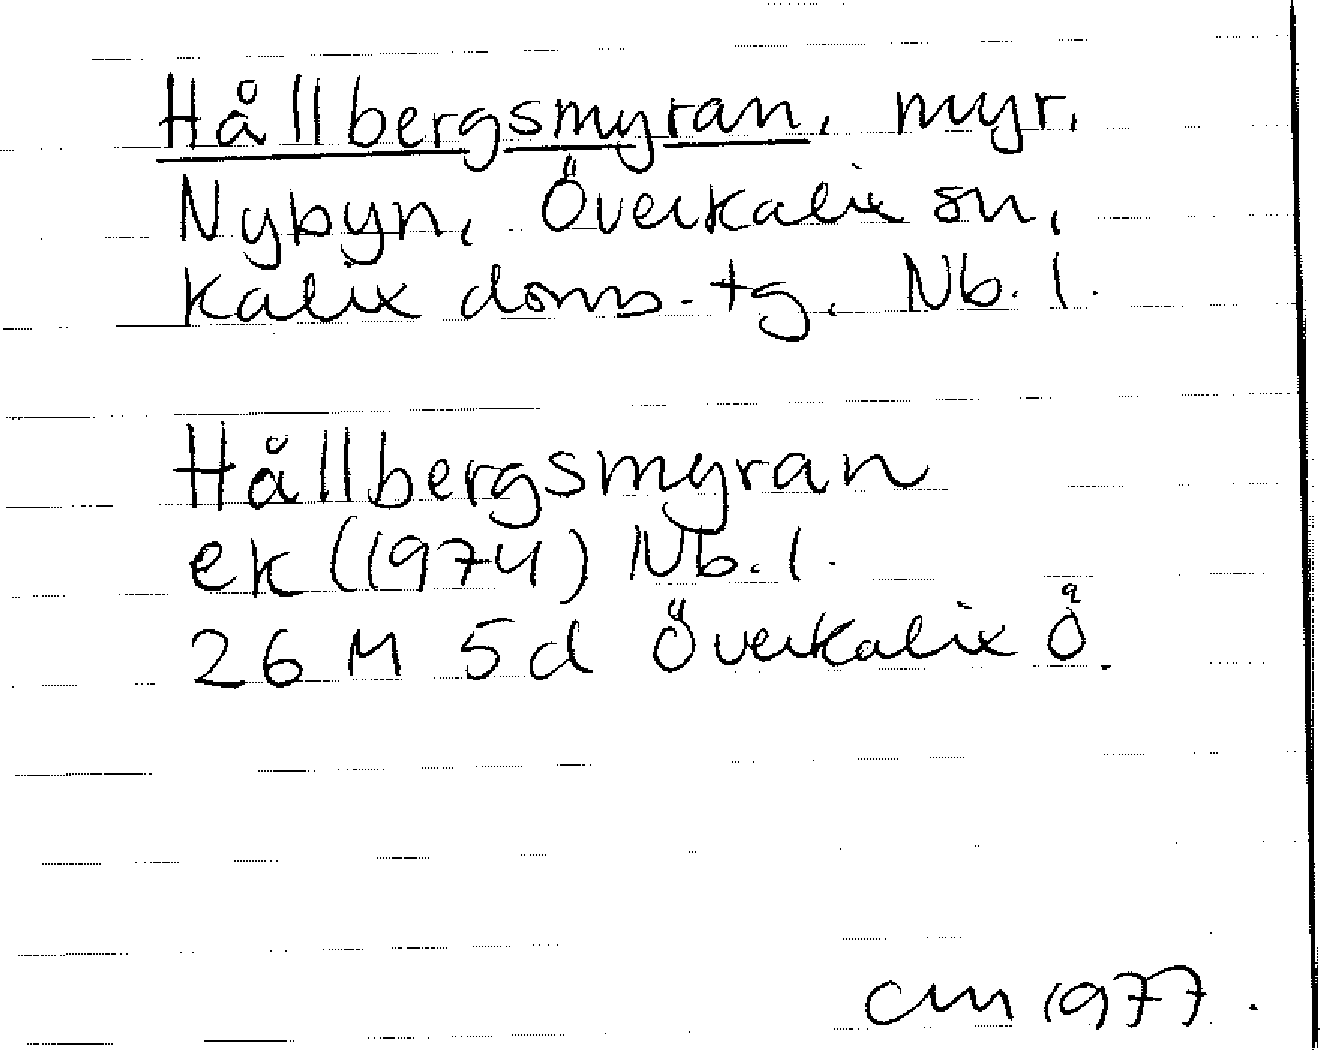 Hållbergsmyran, myr,
Nybyn, Överkalix sn,
Kalix doms.tg. Nb. l.
Hållbergsmyran
ek (1974) Nb. l.
26 M 5d Överkalix Ö.
CM 1977.